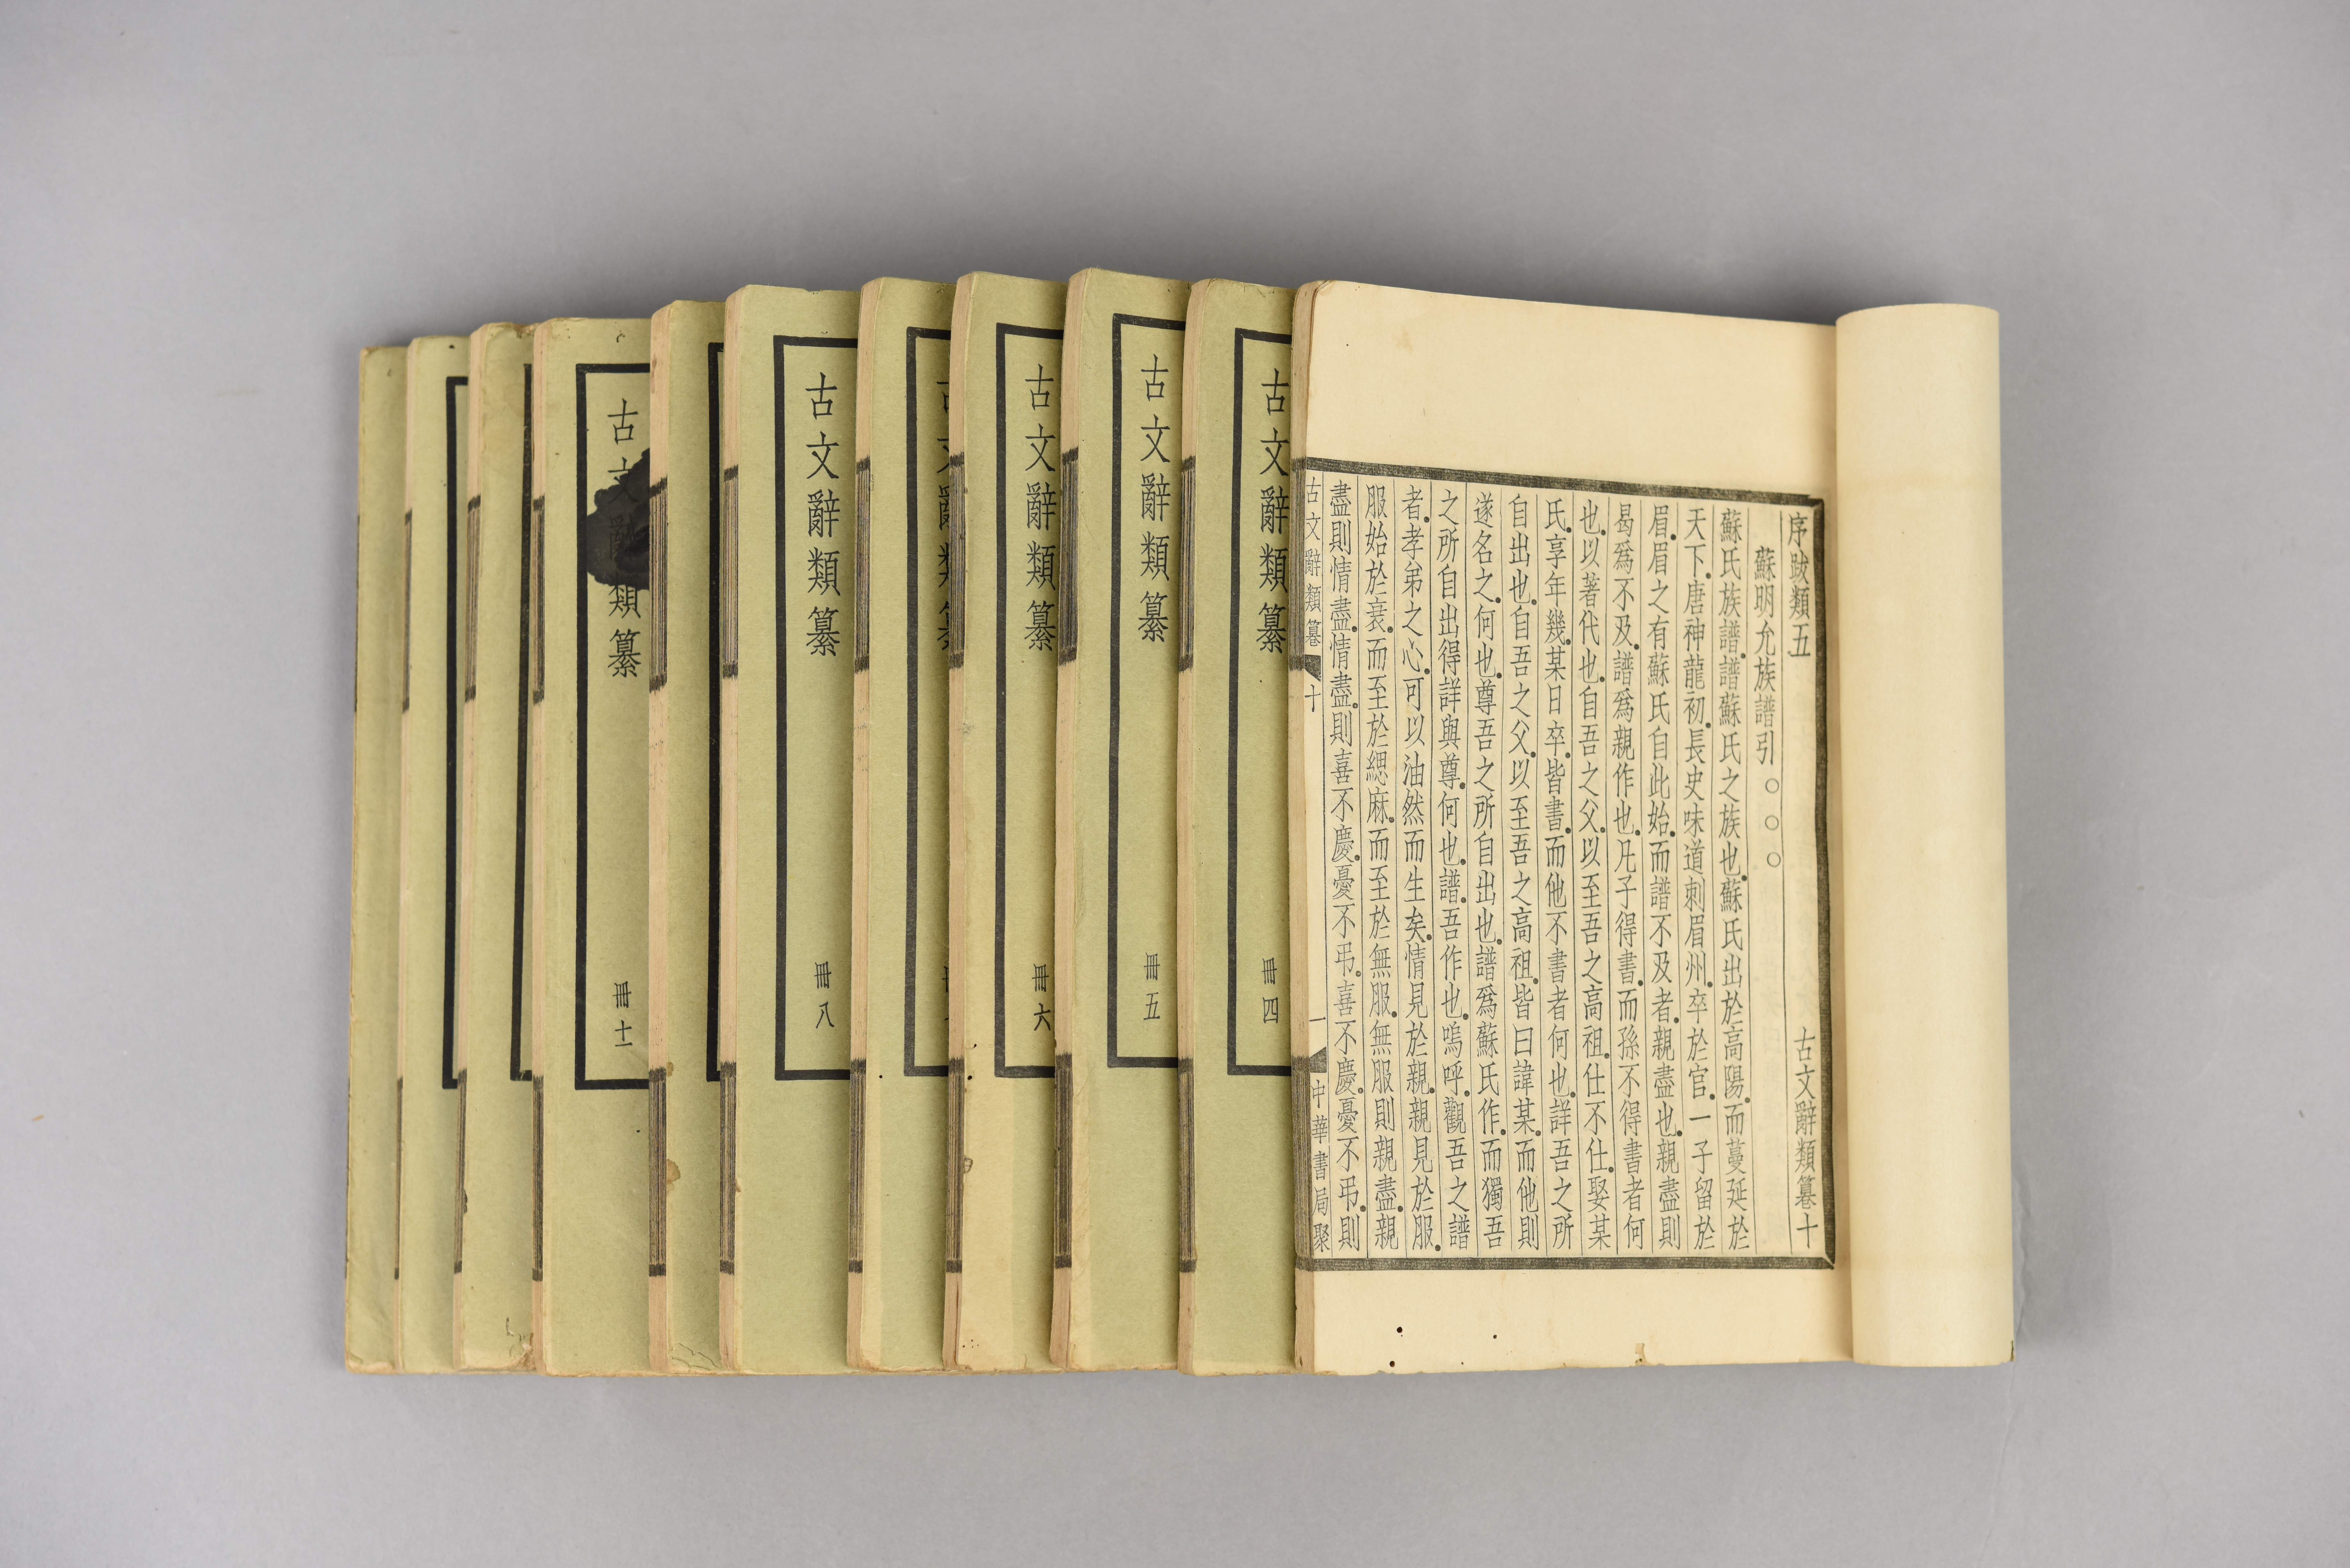 序跋類五
古文辭類纂十
蘇明允族譜引○○○
蘇氏族譜譜蘇氏之族也蘇氏出於高陽而蔓延於
天下唐神龍初長史味道刺眉州卒於官一子留於
眉眉之有蘇氏自此始而譜不及者親盡也親盡則
曷爲不及譜爲親作也凡子得書而孫不得書者何
也以著代也自吾之父以至吾之高祖仕不仕娶某
氏享年幾某日卒皆書而他不書者何也詳吾之所
自出也自吾之父以至吾之高祖皆曰諱某而他則
遂名之何也尊吾之所自出也譜爲蘇氏作而獨吾
之所自出得詳與尊何也譜吾作也嗚呼觀吾之譜
者孝弟之心可以油然而生矣情見於親親見於服
服始於衰而至於緦麻而至於無服無服則親盡親
盡則情盡情盡則喜不慶憂不弔喜不慶憂不弔則
古文辭類纂
十
一
中華書局聚
古文辭類纂
冊四
古文辭類纂
冊五
古文辭類纂
冊六
古文辭類纂
冊八
古文辭類纂
冊十